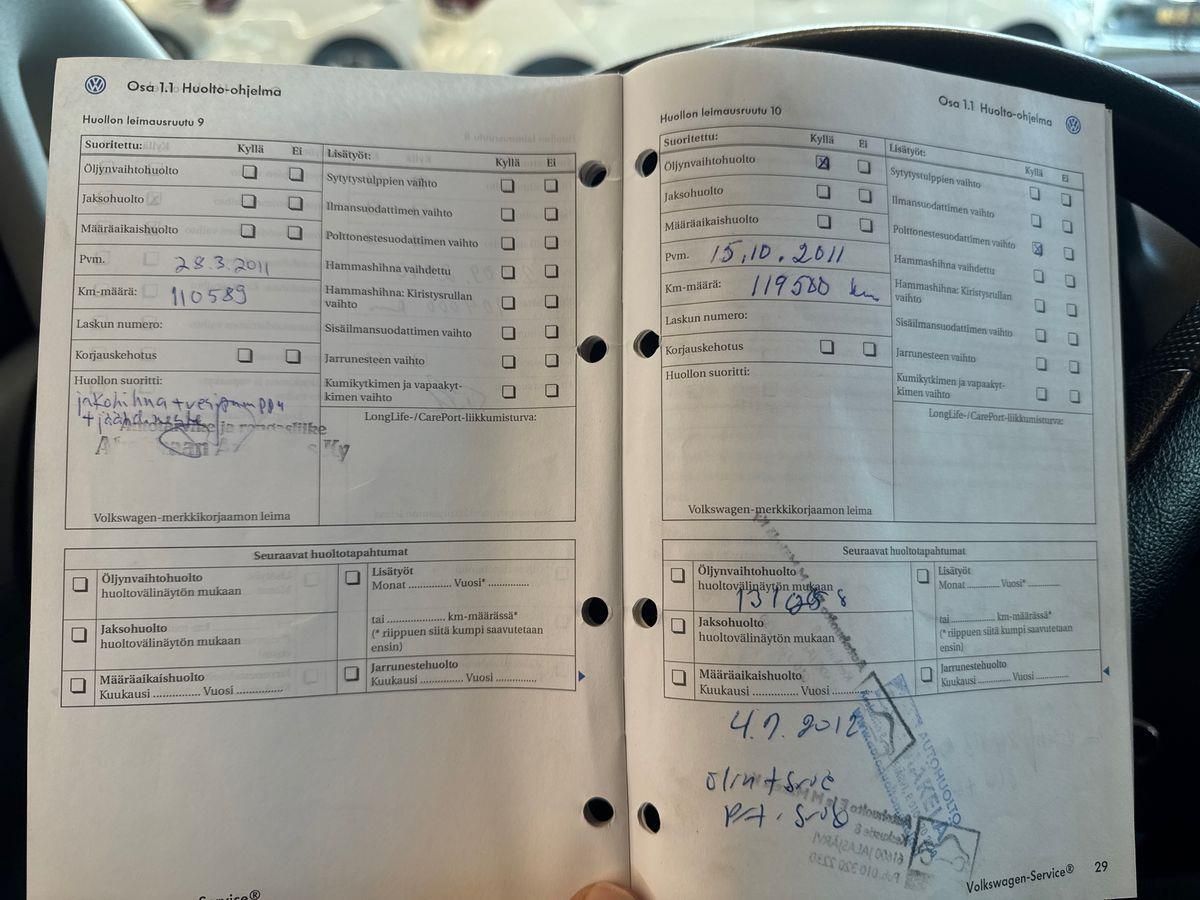 Osa 1.1 Huolto-ohjelma
Huollon leimausruutu 9
Suoritettu: Kyllä Ei
Öljynvaihtohuolto
Jaksohuolto
Määräaikaishuolto
Pvm. 28.3.2011
Km-määrä: 110589
Laskun numero:
Korjauskehotus
Huollon suoritti:
jakohihna + vesipumppu
Volkswagen-merkkikorjaamon leima
Lisätyöt: Kyllä Ei
Sytytystulppien vaihto
Ilmansuodattimen vaihto
Polttonestesuodattimen vaihto
Hammashihna vaihdettu
Hammashihna: Kiristysrullan
vaihto
Sisäilmansuodattimen vaihto
Jarrunesteen vaihto
Kumikytkimen ja vapaakyt-
kimen vaihto
LongLife-/CarePort-liikkumisturva:
Seuraavat huoltotapahtumat
Öljynvaihtohuolto
huoltovälinäytön mukaan
Jaksohuolto
huoltovälinäytön mukaan
Määräaikaishuolto
Kuukausi .............. Vuosi ..............
Lisätyöt
Monat ............. Vuosi* .............
tai .................... km-määrässä*
(* riippuen siitä kumpi saavutetaan
ensin)
Jarrunestehuolto
Kuukausi ............. Vuosi .............
Osa 1.1 Huolto-ohjelma
Huollon leimausruutu 10
Suoritettu: Kyllä Ei
Öljynvaihtohuolto
Jaksohuolto
Määräaikaishuolto
Pvm. 15.10.2011
Km-määrä: 119500 km
Laskun numero:
Korjauskehotus
Huollon suoritti:
Volkswagen-merkkikorjaamon leima
Lisätyöt: Kyllä Ei
Sytytystulppien vaihto
Ilmansuodattimen vaihto
Polttonestesuodattimen vaihto
Hammashihna vaihdettu
Hammashihna: Kiristysrullan
vaihto
Sisäilmansuodattimen vaihto
Jarrunesteen vaihto
Kumikytkimen ja vapaakyt-
kimen vaihto
LongLife-/CarePort-liikkumisturva:
Seuraavat huoltotapahtumat
Öljynvaihtohuolto
huoltovälinäytön mukaan
Jaksohuolto
huoltovälinäytön mukaan
Määräaikaishuolto
Kuukausi .............. Vuosi ..............
Lisätyöt
Monat ............. Vuosi* .............
tai .................... km-määrässä*
(* riippuen siitä kumpi saavutetaan
ensin)
Jarrunestehuolto
Kuukausi ............. Vuosi .............
AUTOHUOLTO
MÄKELÄ
Volkswagen-Service® 29